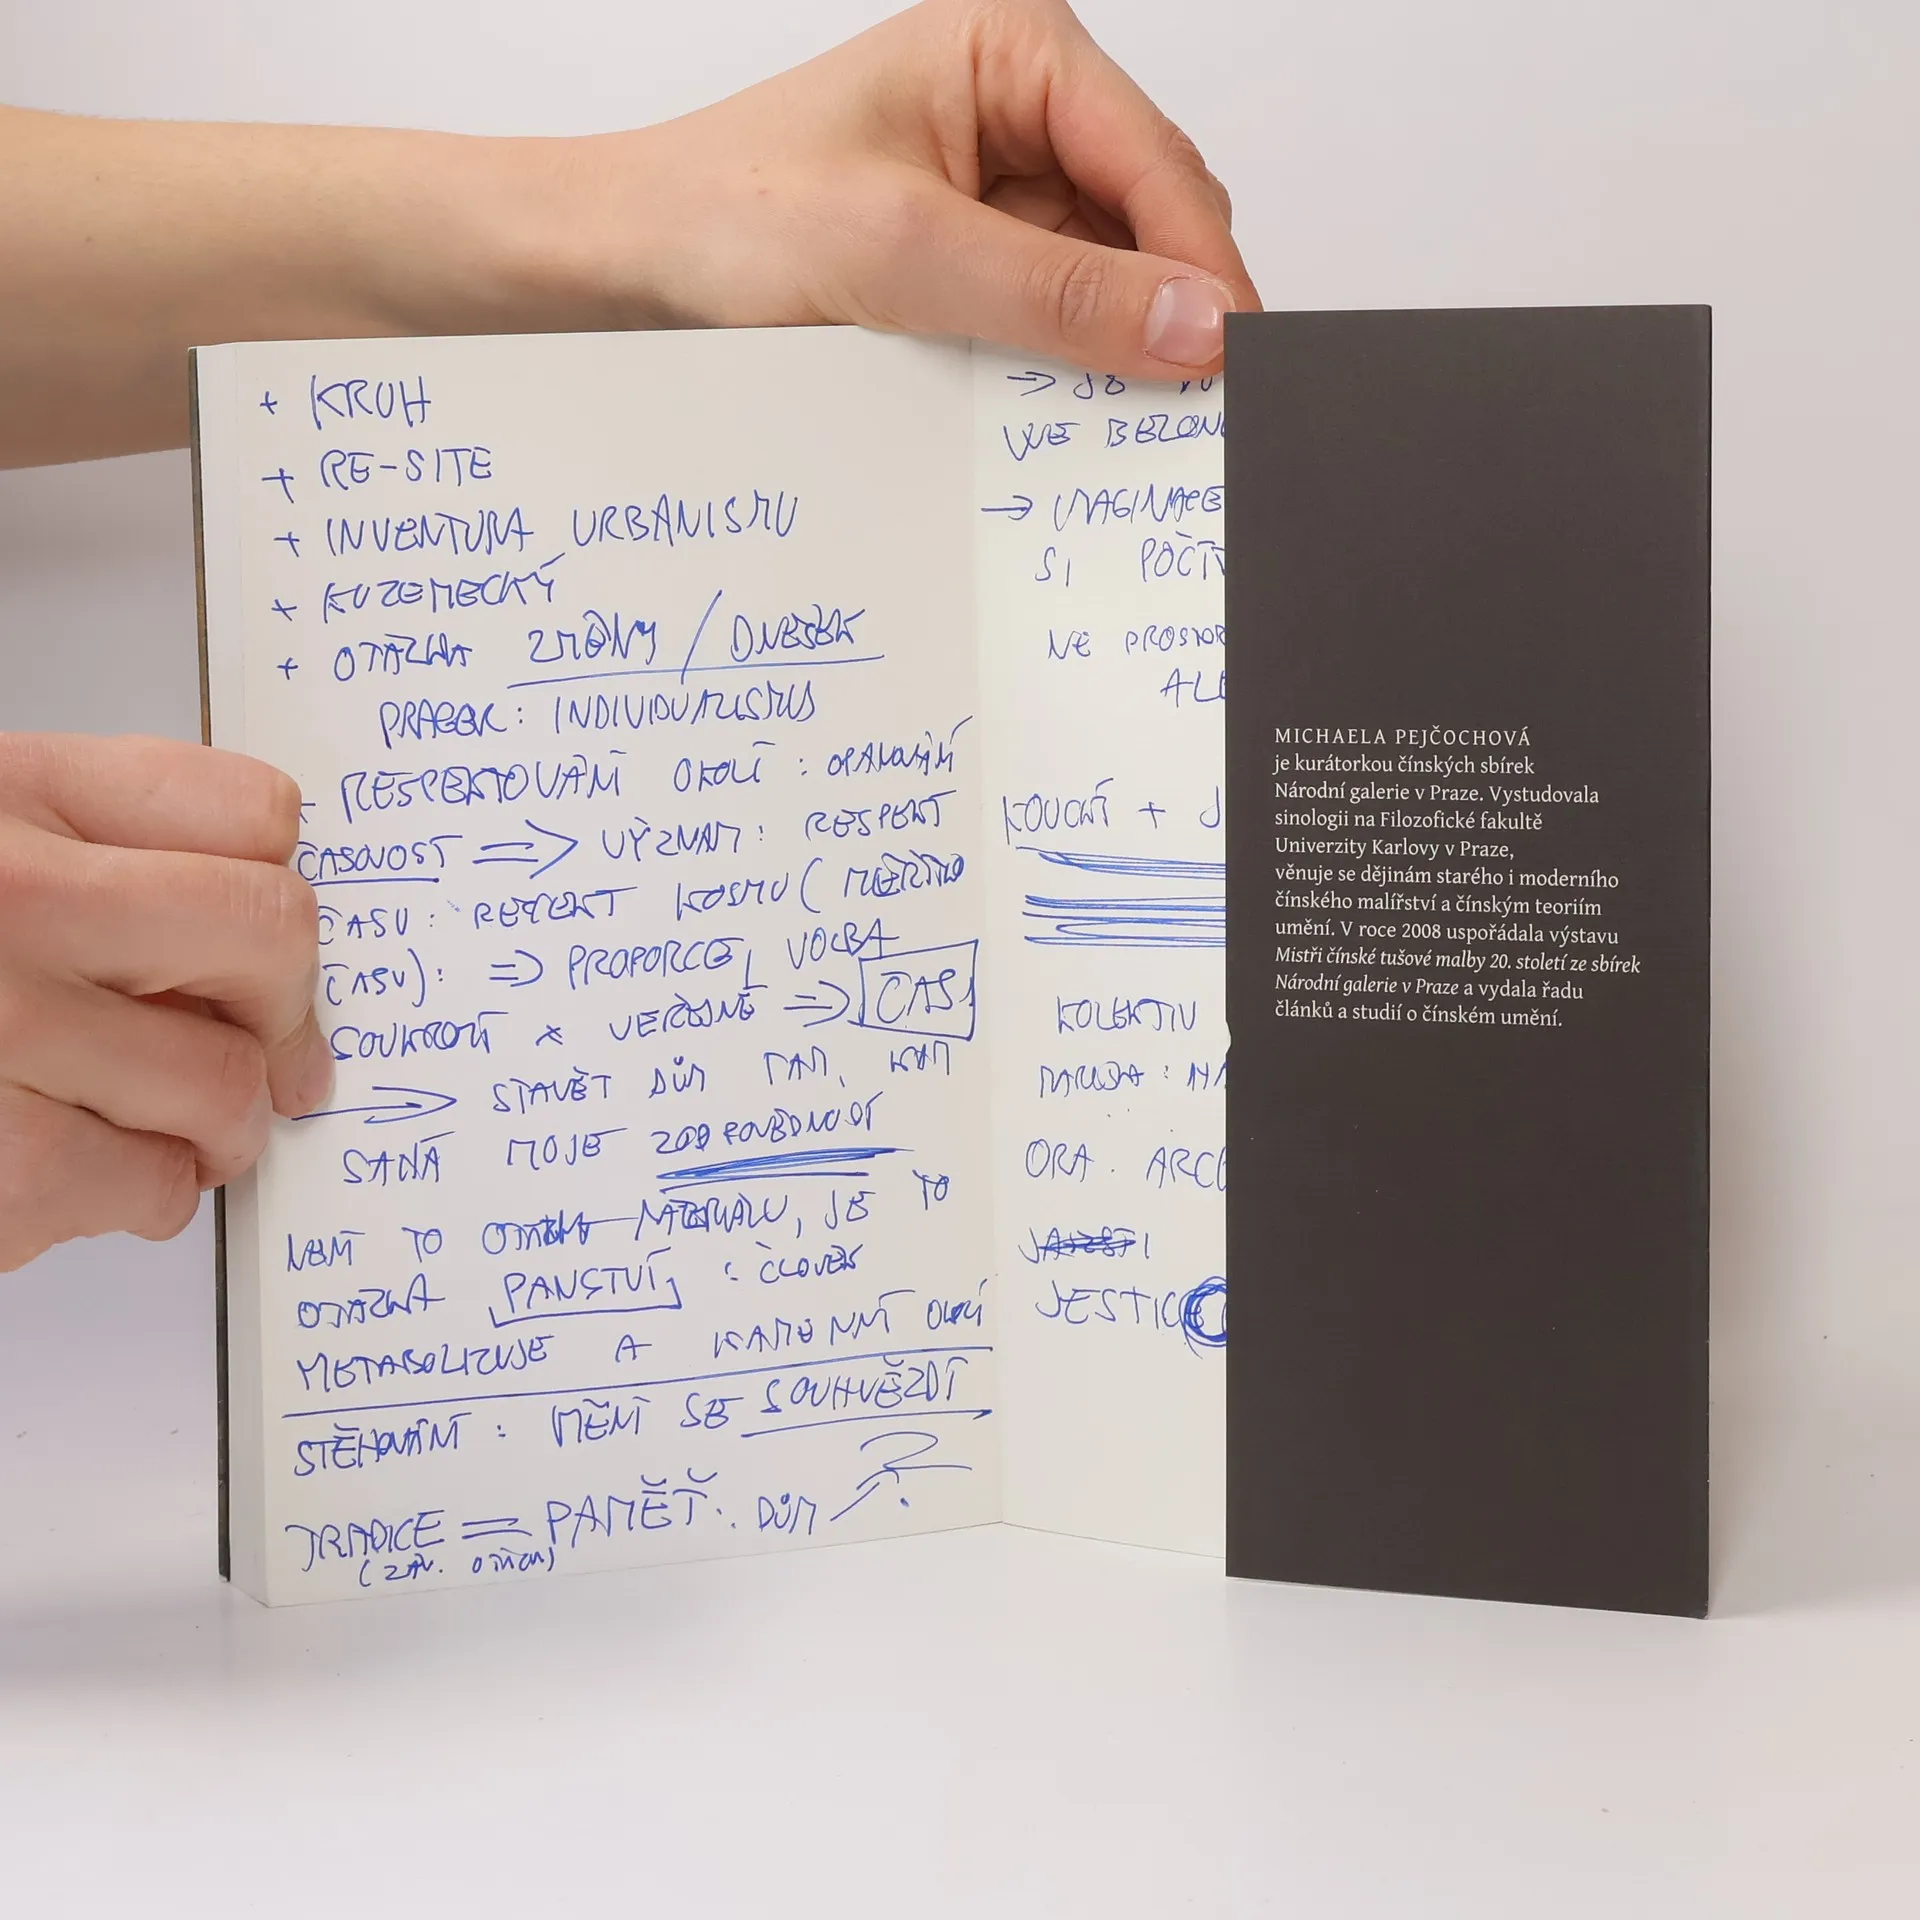 + KRUH
+ RE-SITE
+ INVENTURA URBANISMU
+ KUZEMECKÝ
+ OTÁZKA ZMĚNY / DNEŠEK
PRAGER: INDIVIDUALISMUS
+ RESPEKTOVÁNÍ OKOLÍ : OPAKOVÁNÍ
ČASOVOST => VÝZNAM: RESPEKT
ČASU: RESPEKT KOSMU (MĚŘÍTKO
ČASU): => PROPORCE, VOLBA
SOUKROMÍ × VEŘEJNÉ => ČAS
→ STAVĚT DŮM TAM, KAM
SAHÁ MOJE ZODPOVĚDNOST
NENÍ TO OTÁZKA MATERIÁLU, JE TO
OTÁZKA PANSTVÍ : ČLOVĚK
METABOLIZUJE A KAMENNÍ OKOLÍ
STĚHOVÁNÍ : MĚNÍ SE SOUHVĚZDÍ
TRADICE = PAMĚŤ. DŮM ?
→ JE
WE BELON
→ IMAGINACE
SI POČÍT
NE PROSTOR
ALE
KOUCKÝ + J
KOLEKTIV
ORA. ARC
JESTICO
MICHAELA PEJČOCHOVÁ
je kurátorkou čínských sbírek
Národní galerie v Praze. Vystudovala
sinologii na Filozofické fakultě
Univerzity Karlovy v Praze,
věnuje se dějinám starého i moderního
čínského malířství a čínským teoriím
umění. V roce 2008 uspořádala výstavu
Mistři čínské tušové malby 20. století ze sbírek
Národní galerie v Praze a vydala řadu
článků a studií o čínském umění.